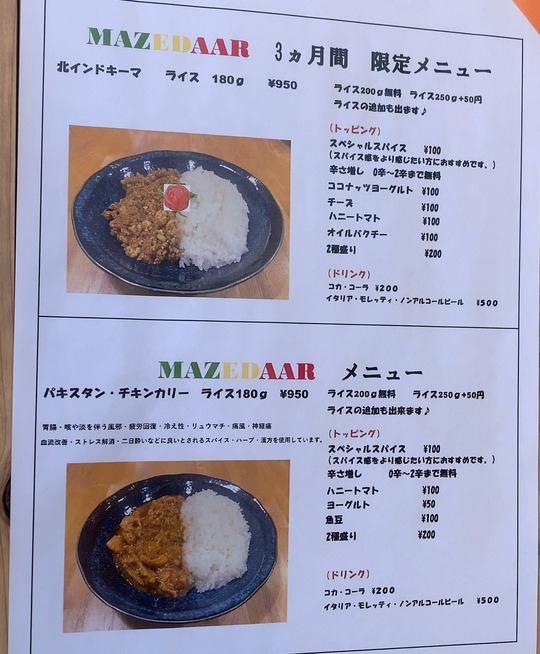 MAZEDAAR 3ヵ月間 限定メニュー
北インドキーマ ライス 180g ¥950
ライス200g無料 ライス250g+50円
ライスの追加も出ます♪
(トッピング)
スペシャルスパイス ¥100
(スパイス感をより感じたい方におすすめです。)
辛さ増し 0辛~2辛まで無料
ココナッツヨーグルト ¥100
チーズ ¥100
ハニートマト ¥100
オイルパクチー ¥100
2種盛り ¥200
(ドリンク)
コカ・コーラ ¥200
イタリア・モレッティ・ノンアルコールビール ¥500
MAZEDAAR メニュー
パキスタン・チキンカリー ライス180g ¥950
胃腸・咳や淡を伴う風邪・疲労回復・冷え性・リュウマチ・痛風・神経痛
血流改善・ストレス解消・二日酔いなどに良いとされるスパイス・ハーブ・漢方を使用しています。
ライス200g無料 ライス250g+50円
ライスの追加も出来ます♪
(トッピング)
スペシャルスパイス ¥100
(スパイス感をより感じたい方におすすめです。)
辛さ増し 0辛~2辛まで無料
ハニートマト ¥100
ヨーグルト ¥50
魚豆 ¥100
2種盛り ¥200
(ドリンク)
コカ・コーラ ¥200
イタリア・モレッティ・ノンアルコールビール ¥500